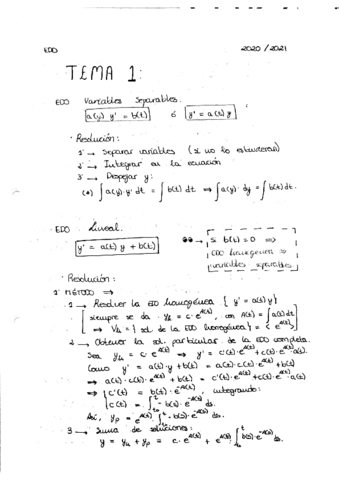 EDO 2020/2021
TEMA 1:
EDO Variables Separables.
a(y) y' = b(t) ó y' = a(t) y
· Resolución:
1 → Separar variables (si no lo estuvieran)
2 → Integrar en la ecuación
3 → Despejar y:
(*) ∫ a(y)·y' dt = ∫ b(t) dt ⇒ ∫ a(y)·dy = ∫ b(t) dt.
· EDO Lineal.
y' = a(t) y + b(t)
→ si b(t) = 0 ⇒
EDO homogénea ⇒
variables separables
· Resolución:
1 MÉTODO ⇒
1 → Resolver la EDO homogénea { y' = a(t) y }
siempre se da · y_h = c·e^{A(t)}, con A(t) = ∫ a(t) dt
⇒ V_h = { sol. de la EDO homogénea } = < e^{A(t)} >
2 → Obtener la sol. particular de la EDO completa.
Sea y_p = c·e^{A(t)} ⇒ y' = c'(t)·e^{A(t)} + c(t)·e^{A(t)}·a(t).
Como y' = a(t)·y + b(t) = a(t)·c(t)·e^{A(t)} + b(t)
⇒ a(t)·c(t)·e^{A(t)} + b(t) = c'(t)·e^{A(t)} + c(t)·e^{A(t)}·a(t)
⇒ { c'(t) = b(t)·e^{-A(t)} ; integrando:
c(t) = ∫ b(s)·e^{-A(s)} ds.
Así, y_p = e^{A(t)} ∫ b(s)·e^{-A(s)} ds.
3 → Suma de soluciones:
y = y_h + y_p = c·e^{A(t)} + e^{A(t)} ∫ b(s)·e^{-A(s)} ds.